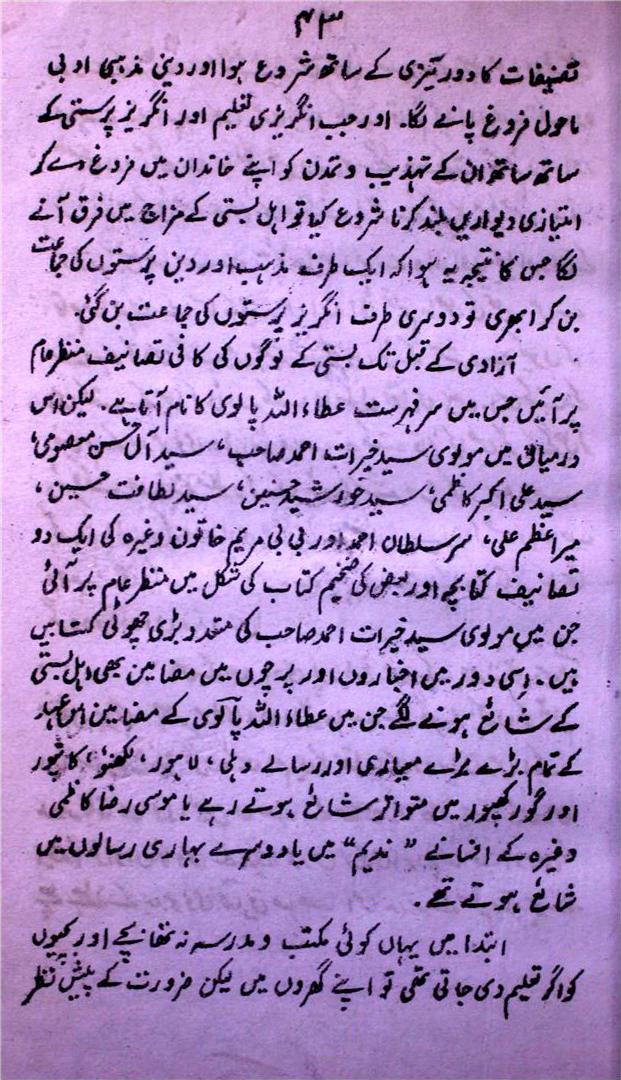 ۴۳
تصنیفات کا دور تیزی کے ساتھ شروع ہوا اور دینی مذہبی ادبی
ماحول فروغ پانے لگا۔ اور جب انگریزی تعلیم اور انگریز پرستی کے
ساتھ ساتھ ان کے تہذیب و تمدن کو اپنے خاندان میں فروغ دے کر
امتیازی دیواریں بلند کرنا شروع کیا تو اہل بستی کے مزاج میں فرق آنے
لگا جس کا نتیجہ یہ ہوا کہ ایک طرف مذہب اور دین پرستوں کی جماعت
بن کر ابھری تو دوسری طرف انگریز پرستوں کی جماعت بن گئی۔
آزادی کے قبل تک بستی کے لوگوں کی کافی تصانیف منظر عام
پر آئیں جس میں سر فہرست عطاء اللہ پالوی کا نام آتا ہے۔ لیکن اس
درمیان میں مولوی سید خیرات احمد صاحب، سید آل حسن معصومی،
سید علی اکبر کاظمی، سید خورشید حسنین، سید لطافت حسین،
میر اعظم علی، سر سلطان احمد اور بی بی مریم خاتون وغیرہ کی ایک دو
تصانیف کتابچے اور بعض کی ضخیم کتاب کی شکل میں منظر عام پر آئی
جن میں مولوی سید خیرات احمد صاحب کی متعدد بڑی چھوٹی کتابیں
ہیں۔ اسی دور میں اخباروں اور پرچوں میں مضامین بھی اہل بستی
کے شائع ہونے لگے جن میں عطاء اللہ پالوی کے مضامین اس عہد
کے تمام بڑے بڑے معیاری اور رسالے دہلی، لاہور، لکھنؤ، کانپور
اور گورکھپور میں متواتر شائع ہوتے رہے یا موسی رضا کاظمی
وغیرہ کے افسانے "ندیم" میں یا دوسرے بہاری رسالوں میں
شائع ہوتے تھے۔
ابتدا میں یہاں کوئی مکتب و مدرسہ نہ تھا بچے اور بچیوں
کو اگر تعلیم دی جاتی تھی تو اپنے گھروں میں لیکن ضرورت کے پیش نظر